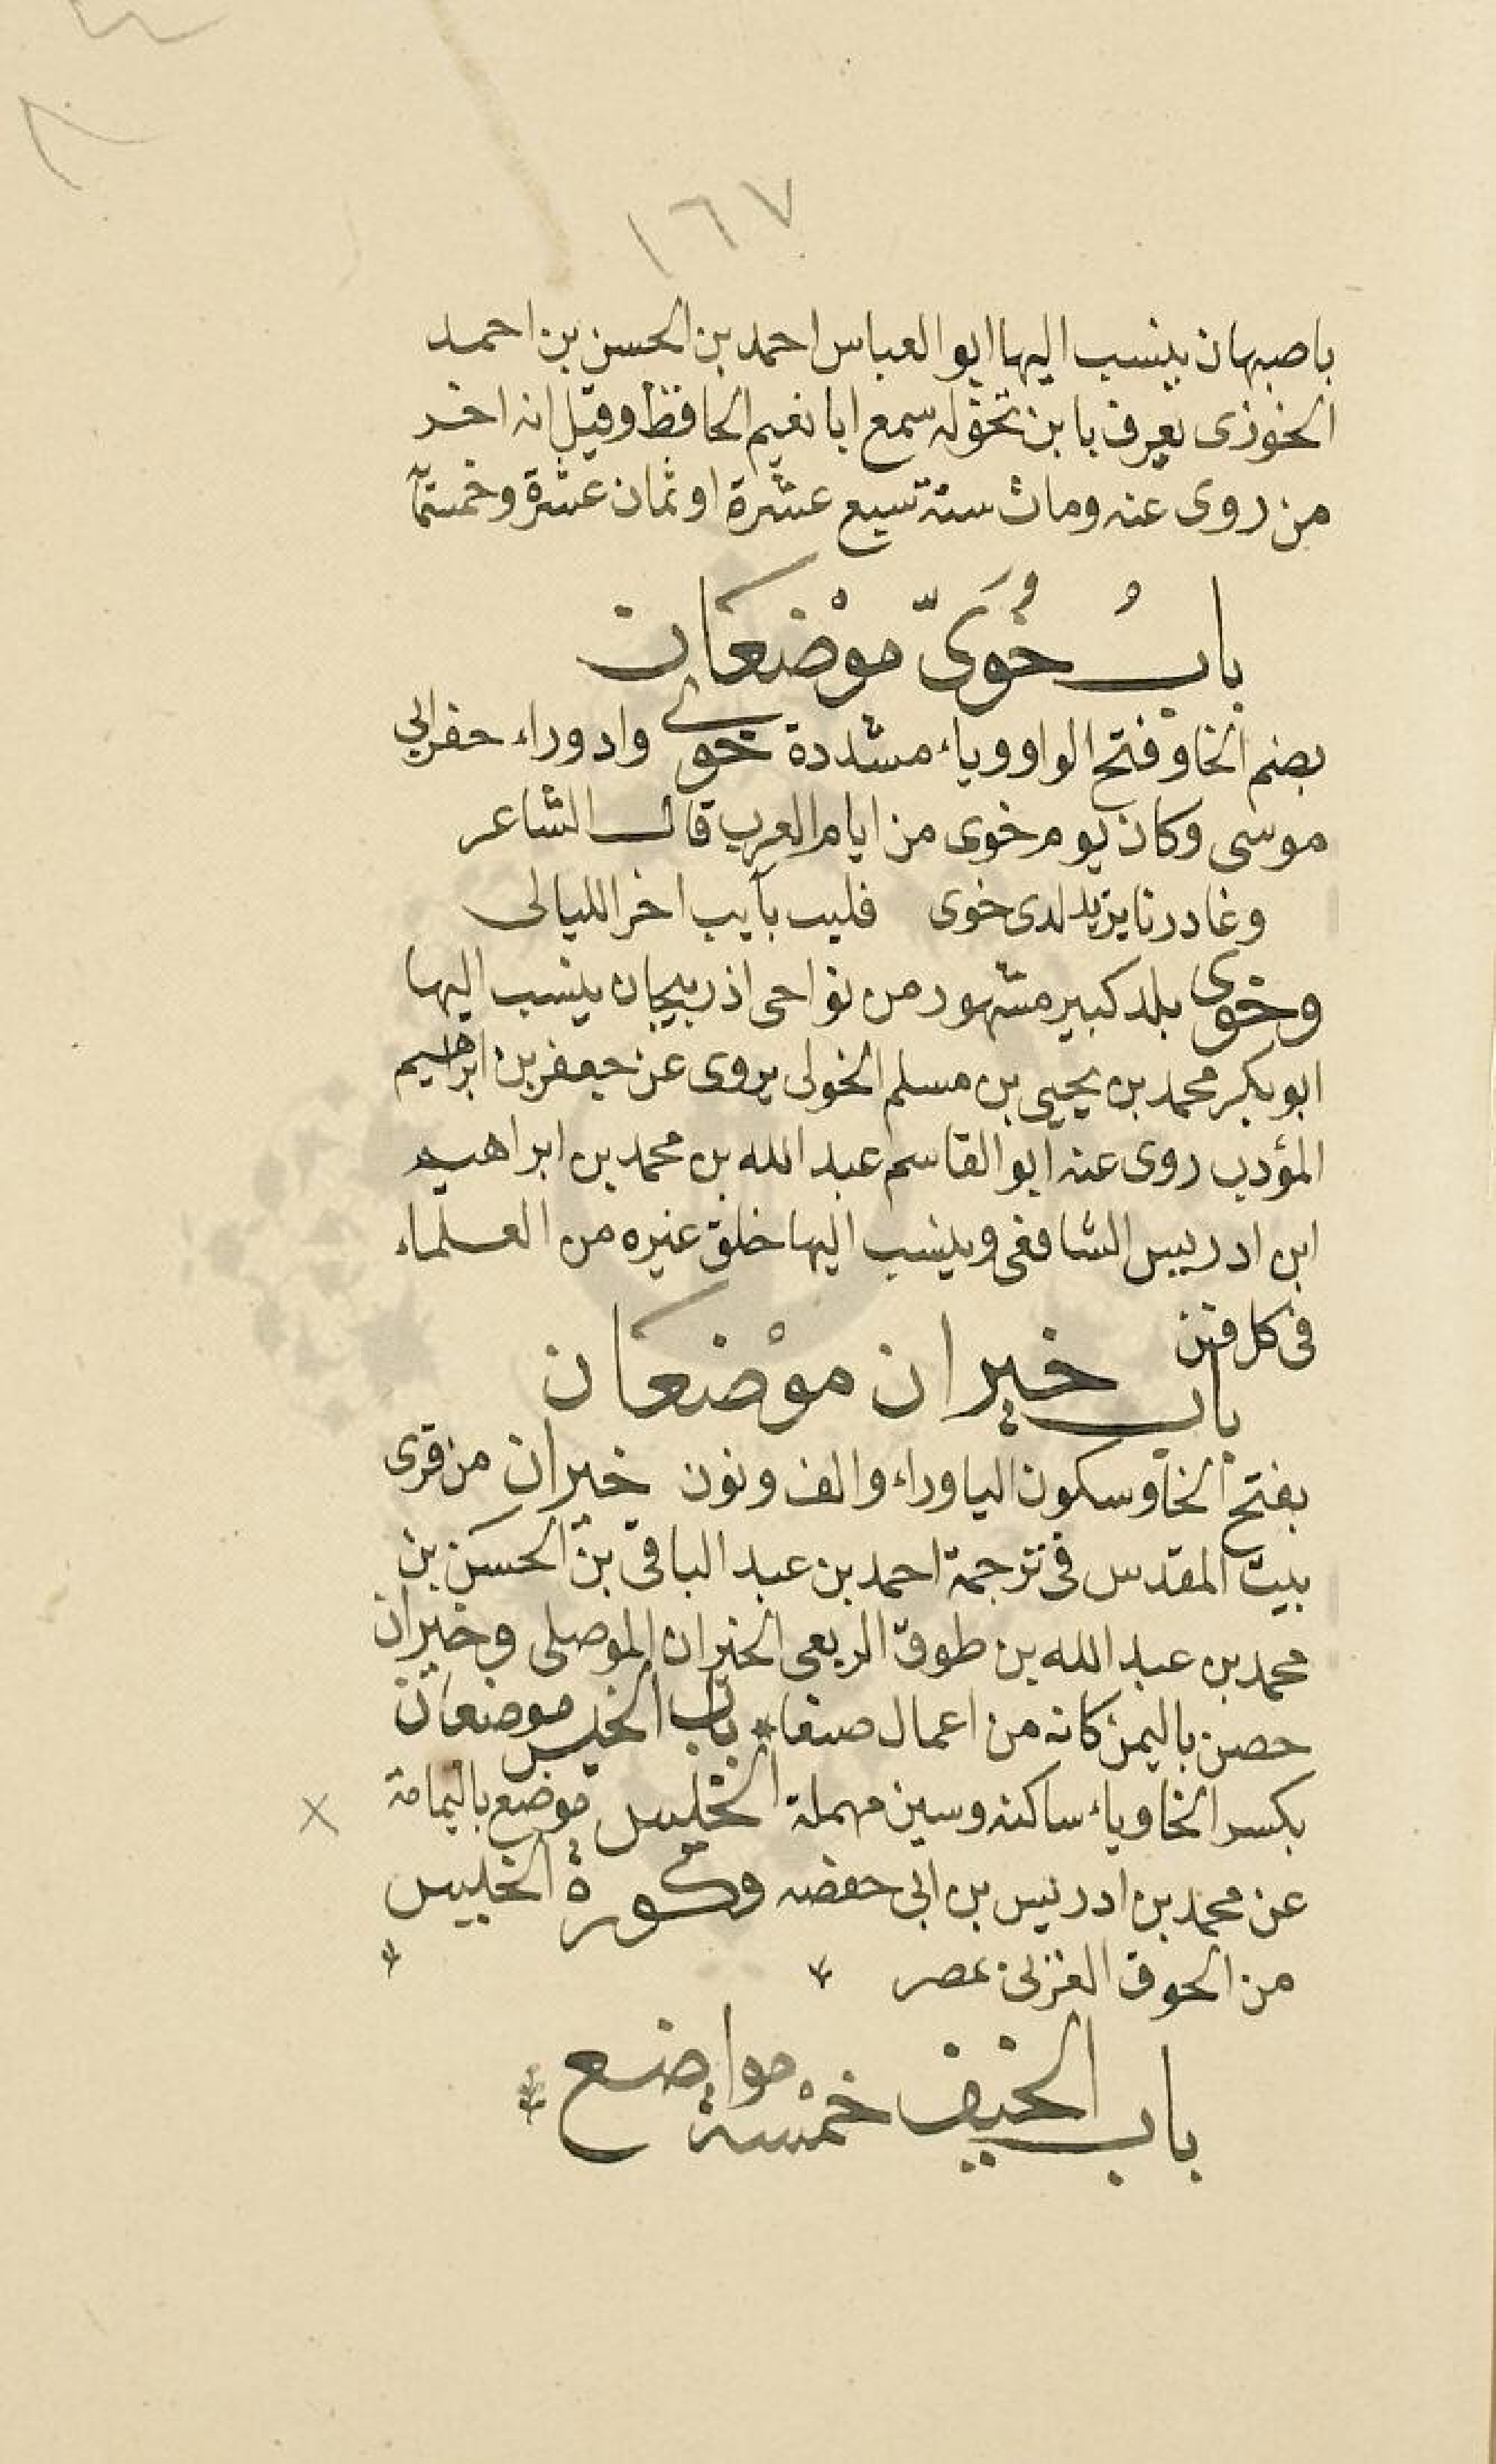 ١٦٧
باصبهان ينسب اليها ابو العباس احمد بن الحسن بن احمد
الخوزى يعرف بابن نحوله سمع ابا نعيم الحافظ وقيل انه اخر
من روى عنه ومات سنة سبع عشرة او ثمان عشرة وخمسمآ
بابُ خُوَىّ موْضعَان
بضم الخاء وفتح الواو وياء مشددة خوى واد وراء حفر ابى
موسى وكان يوم خوى من ايام العرب قال الشاعر
وغادرنا يزيد لدى خوى فليب بآيب اخر الليالى
وخوى بلد كبير مشهور من نواحى اذربيجان ينسب اليها
ابو بكر محمد بن يحيى بن مسلم الخولى يروى عن جعفر بن ابرهيم
المؤدب روى عنه ابو القاسم عبد الله بن محمد بن ابراهيم
ابن ادريس الشافعى وينسب اليها خلق غيره من العلماء
فى كل فن
باب خيران موْضعَان
بفتح الخاء وسكون اليا وراء والف ونون خيران من قرى
بيت المقدس فى ترجمة احمد بن عبد الباقى بن الحسن بن
محمد بن عبد الله بن طوق الربعى الخيران الموصلى وخيران
حصن باليمن كانه من اعمال صنعاء باب الخيس موضعان
بكسر الخا وياء ساكنه وسين مهملة الخيس موضع باليمامة
عن محمد بن ادريس بن ابى حفصه وكورة الخييس
من الحوف الغربى بمصر
باب الخيف خمْسة مواضع